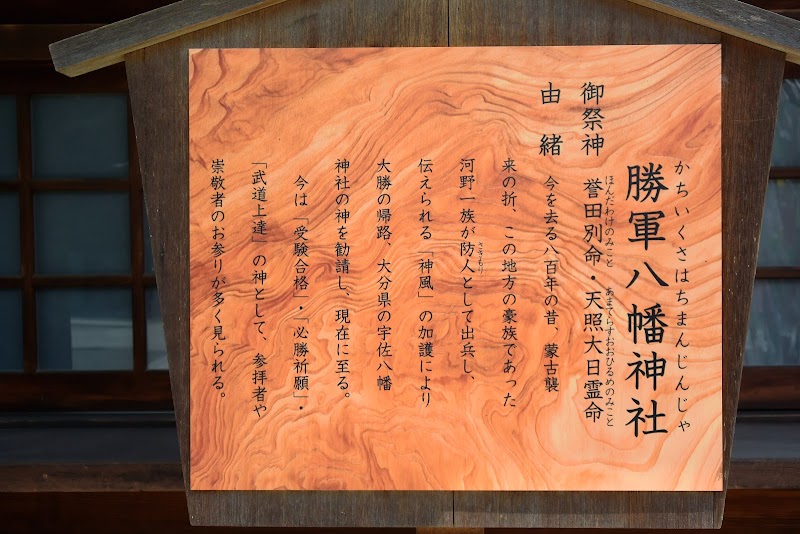 かちいくさはちまんじんじゃ
勝軍八幡神社
ほんだわけのみこと　あまてらすおおひるめのみこと
御祭神　誉田別命・天照大日霊命
由緒　今を去る八百年の昔、蒙古襲
来の折、この地方の豪族であった
さきもり
河野一族が防人として出兵し、
伝えられる「神風」の加護により
大勝の帰路、大分県の宇佐八幡
神社の神を勧請し、現在に至る。
今は「受験合格」・「必勝祈願」・
「武道上達」の神として、参拝者や
崇敬者のお参りが多く見られる。